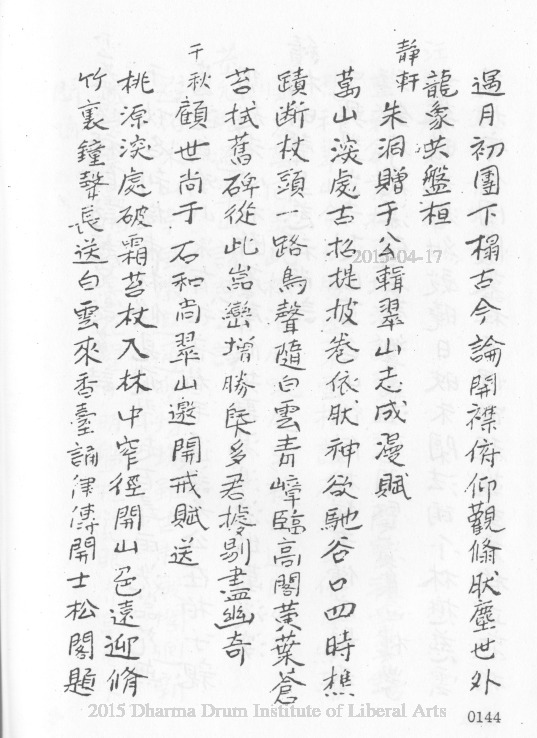 過月初團下榻古今論開襟俯仰觀翛肰塵世外
龍象共盤桓
靜軒 朱洞贈于公輯翠山志成漫賦
萬山深處古松提披卷依肰神欲馳谷口四時樵
蹟斷杖頭一路鳥聲隨白雲青嶂臨高閣黄葉蒼
苔拭舊碑從此嵓巒增勝槩多君據剔盡幽奇
千秋 顧世尚于石和尚翠山邀開戒賦送
桃源深處破霜苔杖入林中窄徑開山色遠迎脩
竹裏鐘聲長送白雲來香臺誦律傳開士松閣題
2013-04-17
2015 Dharma Drum Institute of Liberal Arts
0144